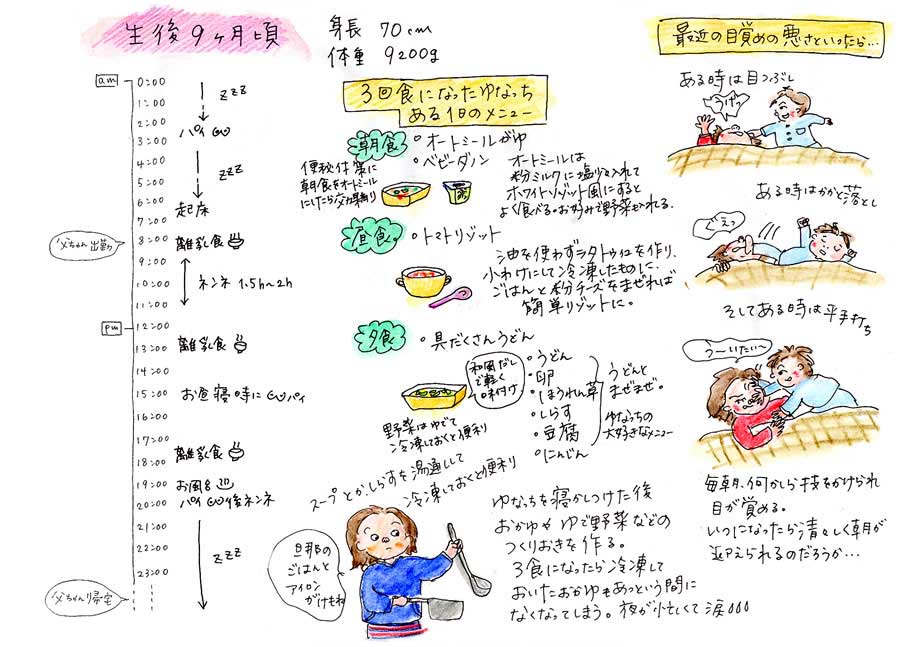 生後9ヶ月頃
身長 70cm
体重 9200g
am
0:00
1:00
zzz
2:00
パイ
3:00
4:00
zzz
5:00
6:00
起床
7:00
父ちゃん出勤
8:00 離乳食
9:00
10:00 ネンネ 1.5h〜2h
11:00
pm
12:00
13:00 離乳食
14:00
15:00 お昼寝時にパイ
16:00
17:00
離乳食
18:00
19:00 お風呂
20:00 パイ後ネンネ
21:00
22:00
zzz
23:00
父ちゃん帰宅
3回食になったゆなっち
ある1日のメニュー
朝食
・オートミールがゆ
・ベビーダノン
便秘対策に
朝食をオートミール
にしたら効果有り
オートミールは
粉ミルクに塩少々入れて
ホワイトリゾット風にすると
よく食べる。お好みで野菜も入れる。
昼食
・トマトリゾット
油を使わずラタトゥイユを作り、
小わけにして冷凍したものに、
ごはんと粉チーズをまぜれば
簡単リゾットに。
夕食
・具だくさんうどん
和風だし
で軽く
味付け
・うどん
・卵
・ほうれん草
・しらす
・豆腐
・にんじん
うどんと
まぜまぜ。
ゆなっちの
大好きなメニュー
野菜はゆでて
冷凍しておくと便利
スープとか、しらすを湯通しして
冷凍しておくと便利
旦那の
ごはんと
アイロン
がけもね
ゆなっちを寝かしつけた後
おかゆやゆで野菜などの
つくりおきを作る。
3食になったら冷凍して
おいたおかゆもあっという間に
なくなってしまう。夜が忙しくて涙
最近の目覚めの悪さといったら…
ある時は目つぶし
ある時はかかと落とし
ぐえっ
そしてある時は平手打ち
うーいたい〜
毎朝、何かしら技をかけられ
目が覚める。
いつになったら清々しく朝が
迎えられるのだろうか…